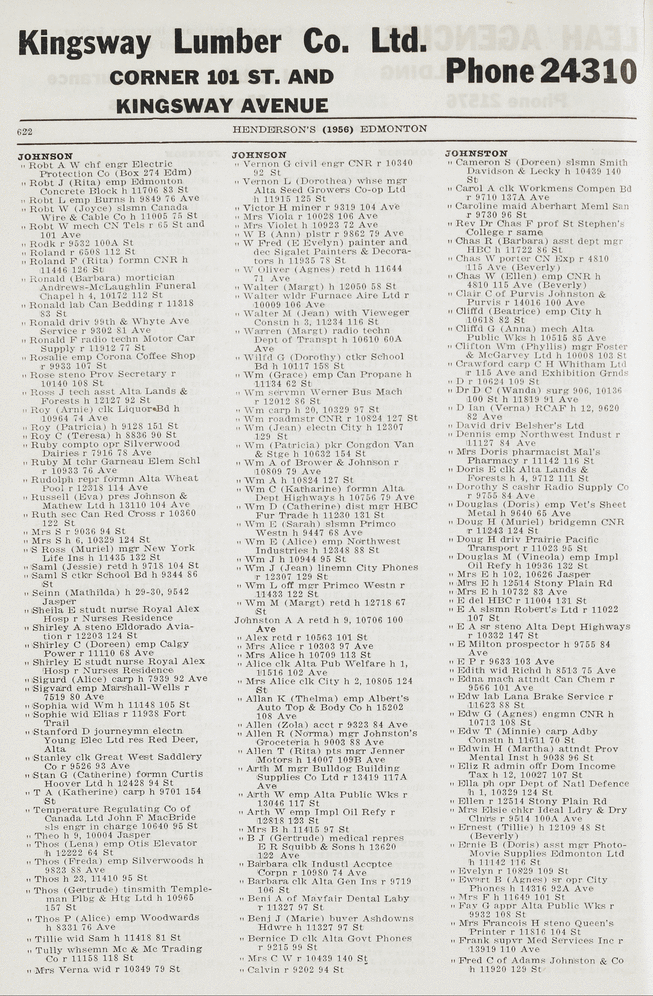 Kingsway Lumber Co. Ltd.
CORNER 101 ST. AND
KINGSWAY AVENUE
Phone 24310
622
HENDERSON'S (1956) EDMONTON
JOHNSON
" Robt A W chf engr Electric
Protection Co (Box 274 Edm)
" Robt J (Rita) emp Edmonton
Concrete Block h 11706 83 St
" Robt L emp Burns h 9849 76 Ave
" Robt W (Joyce) slsmn Canada
Wire & Cable Co h 11005 75 St
" Robt W mech CN Tels r 65 St and
101 Ave
" Rodk r 9532 100A St
" Roland r 6508 112 St
" Roland F (Rita) formn CNR h
11446 126 St
" Ronald (Barbara) mortician
Andrews-McLaughlin Funeral
Chapel h 4, 10172 112 St
" Ronald lab Can Bedding r 11318
83 St
" Ronald driv 99th & Whyte Ave
Service r 9302 81 Ave
" Ronald F radio techn Motor Car
Supply r 11912 77 St
" Rosalie emp Corona Coffee Shop
r 9933 107 St
" Rose steno Prov Secretary r
10140 108 St
" Ross J tech asst Alta Lands &
Forests h 12127 92 St
" Roy (Arnie) clk Liquor Bd h
10964 74 Ave
" Roy (Patricia) h 9128 151 St
" Roy C (Teresa) h 8836 90 St
" Ruby compto opr Silverwood
Dairies r 7916 78 Ave
" Ruby M tchr Garneau Elem Schl
r 10933 76 Ave
" Rudolph repr formn Alta Wheat
Pool r 12318 114 Ave
" Russell (Eva) pres Johnson &
Mathew Ltd h 13110 104 Ave
" Ruth sec Can Red Cross r 10360
122 St
" Mrs S r 9036 94 St
" Mrs S h 6, 10329 124 St
" S Ross (Muriel) mgr New York
Life Ins h 11435 132 St
" Saml (Jessie) retd h 9718 104 St
" Saml S ctkr School Bd h 9344 86
St
" Seinn (Mathilda) h 29-30, 9542
Jasper
" Sheila E studt nurse Royal Alex
Hosp r Nurses Residence
" Shirley A steno Eldorado Avia-
tion r 12203 124 St
" Shirley C (Doreen) emp Calgy
Power r 11110 68 Ave
" Shirley E studt nurse Royal Alex
Hosp r Nurses Residence
" Sigurd (Alice) carp h 7939 92 Ave
" Sigvard emp Marshall-Wells r
7519 80 Ave
" Sophia wid Wm h 11148 105 St
" Sophie wid Elias r 11938 Fort
Trail
" Stanford D journeymn electn
Young Elec Ltd res Red Deer,
Alta
" Stanley clk Great West Saddlery
Co r 9526 93 Ave
" Stan G (Catherine) formn Curtis
Hoover Ltd h 12428 94 St
" T A (Katherine) carp h 9701 154
St
" Temperature Regulating Co of
Canada Ltd John F MacBride
sls engr in charge 10640 95 St
" Theo h 9, 10004 Jasper
" Thos (Lena) emp Otis Elevator
h 12222 64 St
" Thos (Freda) emp Silverwoods h
9823 88 Ave
" Thos h 23, 11410 95 St
" Thos (Gertrude) tinsmith Temple-
man Plbg & Htg Ltd h 10965
157 St
" Thos P (Alice) emp Woodwards
h 8331 76 Ave
" Tillie wid Sam h 11418 81 St
" Tully whsemn Mc & Mc Trading
Co r 11158 118 St
" Mrs Verna wid r 10349 79 St
JOHNSON
" Vernon G civil engr CNR r 10340
92 St
" Vernon L (Dorothea) whse mgr
Alta Seed Growers Co-op Ltd
h 11915 125 St
" Victor H miner r 9319 104 Ave
" Mrs Viola r 10028 106 Ave
" Mrs Violet h 10923 72 Ave
" W B (Ann) plstr r 9862 79 Ave
" W Fred (E Evelyn) painter and
dec Sigalet Painters & Decora-
tors h 11935 78 St
" W Oliver (Agnes) retd h 11644
71 Ave
" Walter (Margt) h 12050 58 St
" Walter wldr Furnace Aire Ltd r
10009 106 Ave
" Walter M (Jean) with Vieweger
Constn h 3, 11234 116 St
" Warren (Margt) radio techn
Dept of Transpt h 10610 60A
Ave
" Wilfd G (Dorothy) ctkr School
Bd h 10117 158 St
" Wm (Grace) emp Can Propane h
11134 62 St
" Wm servmn Werner Bus Mach
r 12012 86 St
" Wm carp h 20, 10329 97 St
" Wm roadmstr CNR r 10824 127 St
" Wm (Jean) electn City h 12307
129 St
" Wm (Patricia) pkr Congdon Van
& Stge h 10632 154 St
" Wm A of Brower & Johnson r
10809 79 Ave
" Wm A h 10824 127 St
" Wm C (Katharine) formn Alta
Dept Highways h 10756 79 Ave
" Wm D (Catherine) dist mgr HBC
Fur Trade h 11230 131 St
" Wm E (Sarah) slsmn Primco
Westn h 9447 68 Ave
" Wm E (Alice) emp Northwest
Industries h 12348 88 St
" Wm J h 10944 95 St
" Wm J (Jean) linemn City Phones
r 12307 129 St
" Wm L off mgr Primco Westn r
11433 122 St
" Wm M (Margt) retd h 12718 67
St
Johnston A A retd h 9, 10706 100
Ave
" Alex retd r 10563 101 St
" Mrs Alice r 10303 97 Ave
" Mrs Alice h 10709 113 St
" Alice clk Alta Pub Welfare h 1,
11516 102 Ave
" Mrs Alice clk City h 2, 10805 124
St
" Allan K (Thelma) emp Albert's
Auto Top & Body Co h 15202
108 Ave
" Allen (Zola) acct r 9323 84 Ave
" Allen R (Norma) mgr Johnston's
Groceteria h 9003 88 Ave
" Allen T (Rita) pts mgr Jenner
Motors h 14007 109B Ave
" Arth M mgr Bulldog Building
Supplies Co Ltd r 13419 117A
Ave
" Arth W emp Alta Public Wks r
13046 117 St
" Arth W emp Impl Oil Refy r
12818 123 St
" Mrs B h 11415 97 St
" B J (Gertrude) medical repres
E R Squibb & Sons h 13620
122 Ave
" Barbara clk Industl Accptce
Corpn r 10980 74 Ave
" Barbara clk Alta Gen Ins r 9719
106 St
" Benj A of Mayfair Dental Laby
r 11327 97 St
" Benj J (Marie) buyer Ashdowns
Hdwre h 11327 97 St
" Bernice D clk Alta Govt Phones
r 9215 99 St
" Mrs C W r 10439 140 St
" Calvin r 9202 94 St
JOHNSTON
" Cameron S (Doreen) slsmn Smith
Davidson & Lecky h 10439 140
St
" Carol A clk Workmens Compen Bd
r 9710 137A Ave
" Caroline maid Aberhart Meml San
r 9730 96 St
" Rev Dr Chas F prof St Stephen's
College r same
" Chas R (Barbara) asst dept mgr
HBC h 11722 86 St
" Chas W porter CN Exp r 4810
115 Ave (Beverly)
" Chas W (Ellen) emp CNR h
4810 115 Ave (Beverly)
" Clair C of Purvis Johnston &
Purvis r 14016 100 Ave
" Cliffd (Beatrice) emp City h
10618 82 St
" Cliffd G (Anna) mech Alta
Public Wks h 10515 85 Ave
" Clifton Wm (Phyllis) mgr Foster
& McGarvey Ltd h 10008 103 St
" Crawford carp C H Whitham Ltd
r 115 Ave and Exhibition Grnds
" D r 10624 109 St
" Dr D C (Wanda) surg 906, 10136
100 St h 11819 91 Ave
" D Ian (Verna) RCAF h 12, 9620
82 Ave
" David driv Belsher's Ltd
" Dennis emp Northwest Indust r
11127 84 Ave
" Mrs Doris pharmacist Mal's
Pharmacy r 11142 116 St
" Doris E clk Alta Lands &
Forests h 4, 9712 111 St
" Dorothy S cashr Radio Supply Co
r 9755 84 Ave
" Douglas (Doris) emp Vet's Sheet
Metal h 9640 65 Ave
" Doug H (Muriel) bridgemn CNR
r 11243 124 St
" Doug H driv Prairie Pacific
Transport r 11023 95 St
" Douglas M (Vineola) emp Impl
Oil Refy h 10936 132 St
" Mrs E h 102, 10626 Jasper
" Mrs E h 12514 Stony Plain Rd
" Mrs E h 10732 83 Ave
" E del HBC r 11004 131 St
" E A slsmn Robert's Ltd r 11022
107 St
" E A sr steno Alta Dept Highways
r 10332 147 St
" E Milton prospector h 9755 84
Ave
" E P r 9633 103 Ave
" Edith wid Richd h 8513 75 Ave
" Edna mach attndt Can Chem r
9566 101 Ave
" Edw lab Lana Brake Service r
11623 88 St
" Edw G (Agnes) engmn CNR h
10713 108 St
" Edw T (Minnie) carp Adby
Constn h 11611 70 St
" Edwin H (Martha) attndt Prov
Mental Inst h 9038 96 St
" Eliz R admin offr Dom Income
Tax h 12, 10027 107 St
" Ella ph opr Dept of Natl Defence
h 1, 10329 124 St
" Ellen r 12514 Stony Plain Rd
" Mrs Elsie chkr Ideal Ldry & Dry
Clnrs r 9514 100A Ave
" Ernest (Tillie) h 12109 48 St
(Beverly)
" Ernie B (Doris) asst mgr Photo-
Movie Supplies Edmonton Ltd
h 11142 116 St
" Evelyn r 10829 109 St
" Ewart B (Agnes) sr opr City
Phones h 14316 92A Ave
" Mrs F h 11649 101 St
" Fay G appr Alta Public Wks r
9932 108 St
" Mrs Francois H steno Queen's
Printer r 11816 104 St
" Frank supvr Med Services Inc r
13919 110 Ave
" Fred C of Adams Johnston & Co
h 11920 129 St